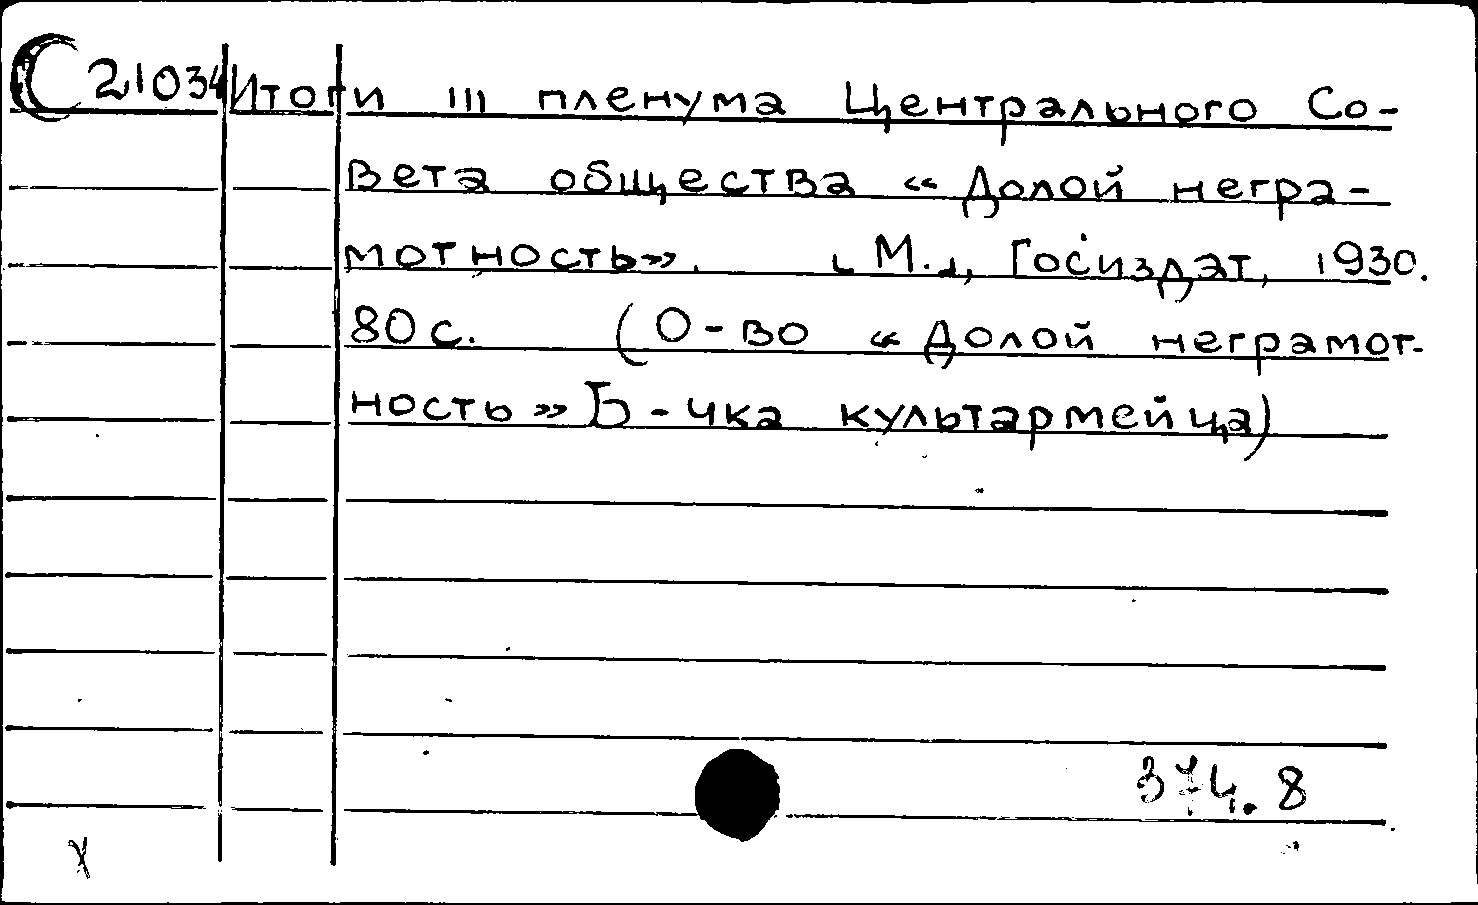 С 21034 Итоги III пленума Центрального Со-
вета общества «Долой негра-
мотность». [М.], Госиздат, 1930.
80 с. (О-во «Долой неграмот-
ность» Б-чка культармейца)
374.8